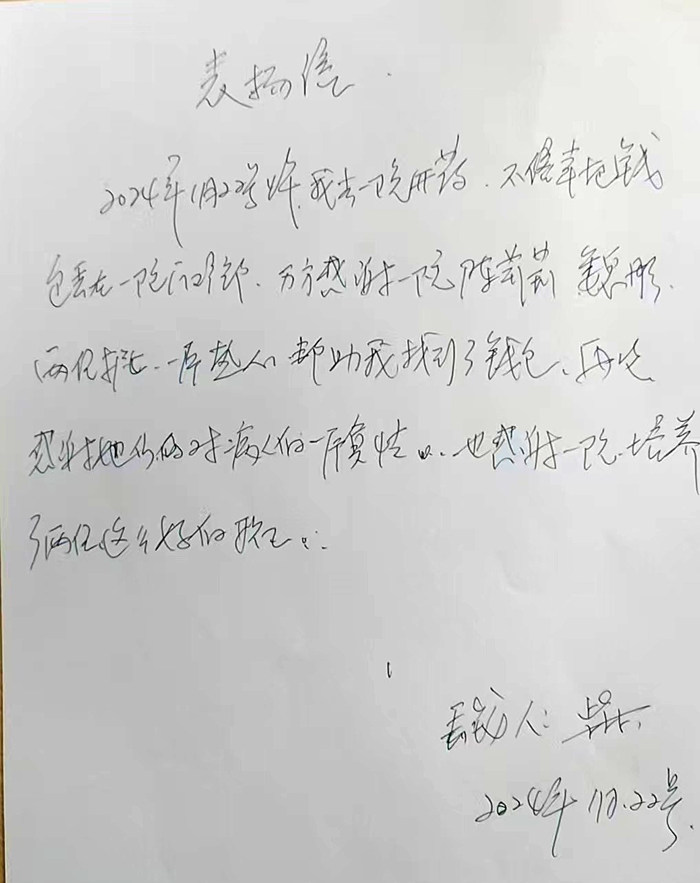 表扬信
2024年11月22号上午,我去一院开药.不慎幸把钱
包丢在一院门诊部.万方感谢一院陈莉莉 魏彤.
两位护士.一片热心帮助我找到了钱包、再次
感谢她们的对病人的一片真情。也感谢一院培养
了两位这么好的护士。
丢钱人:
2024年11月.22号.